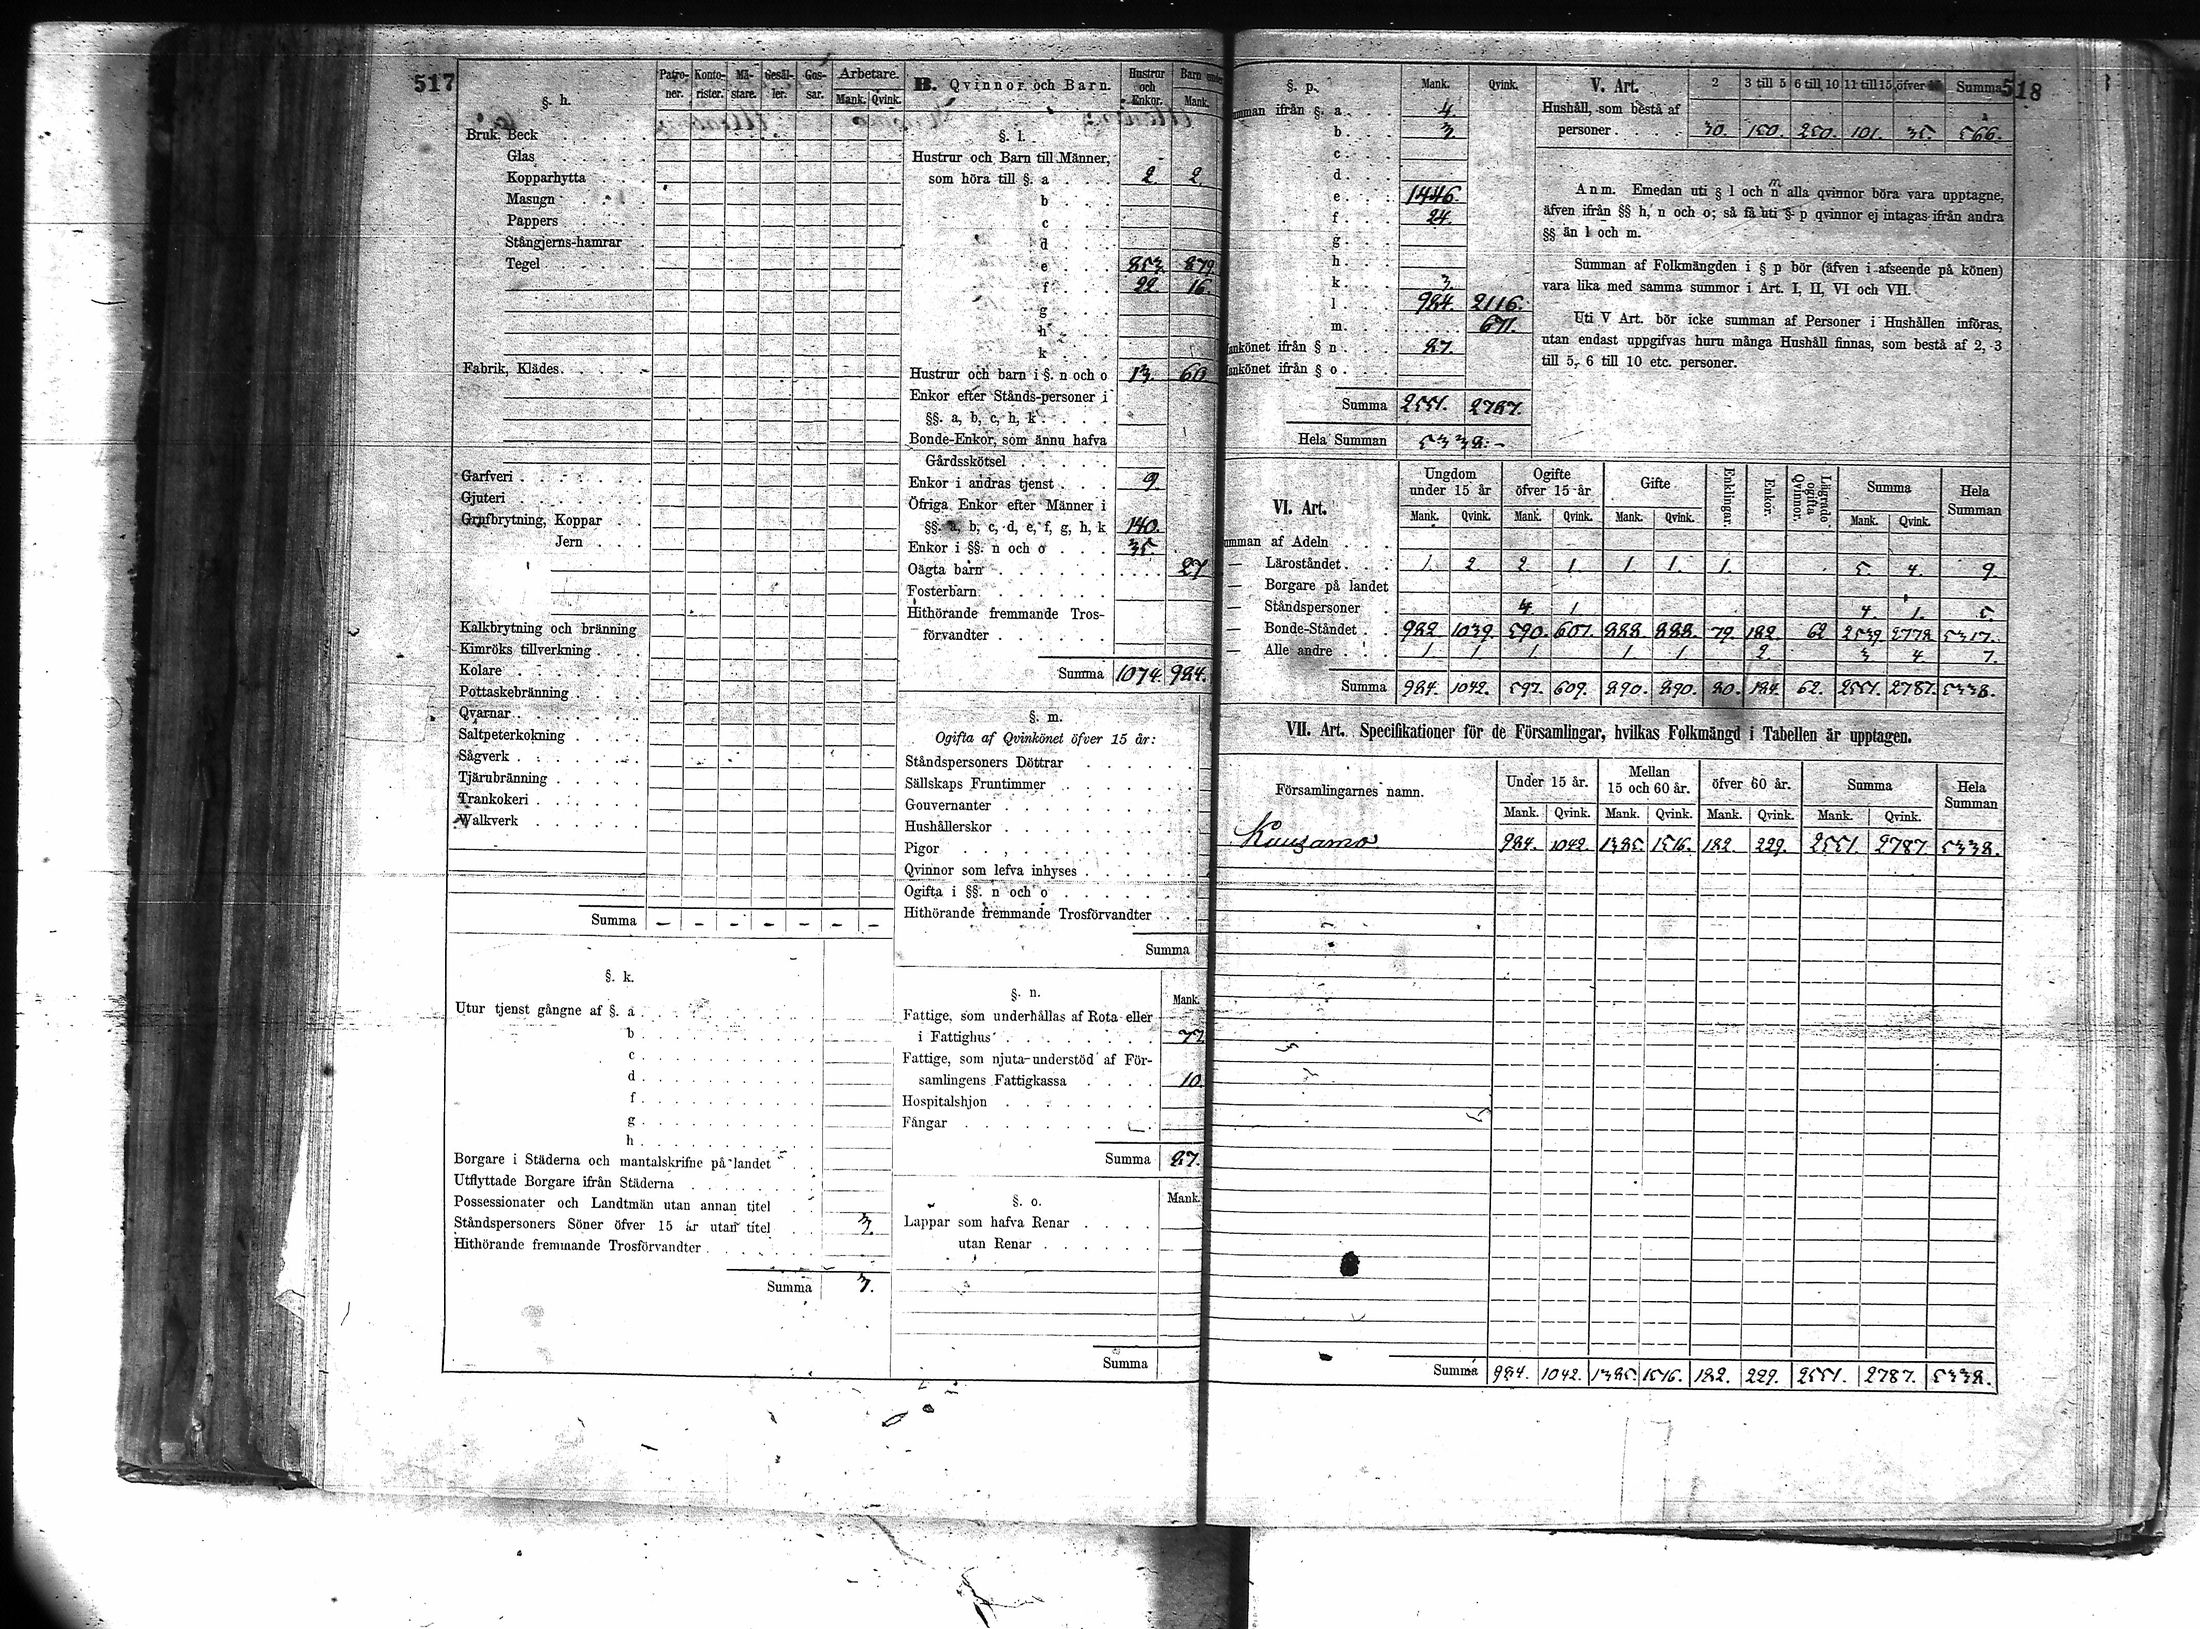 517
§. h.
Patro-ner. Konto-rister. Mä-stare. Gesäl-ler. Gos-sar. Arbetare. Mank. Qvink.
Bruk, Beck
Glas
Kopparhytta
Masugn
Pappers
Stångjerns-hamrar
Tegel
Fabrik, Klädes
Garfveri
Gjuteri
Grufbrytning, Koppar
Jern
Kalkbrytning och bränning
Kimröks tillverkning
Kolare
Pottaskebränning
Qvarnar
Saltpeterkokning
Sågverk
Tjärubränning
Trankokeri
Walkverk
Summa - - - - - - -
§. k.
Utur tjenst gångne af §. a
b
c
d
f
g
h
Borgare i Städerna och mantalskrifne på landet
Utflyttade Borgare ifrån Städerna
Possessionater och Landtmän utan annan titel
Ståndspersoners Söner öfver 15 år utan titel 3.
Hithörande fremmande Trosförvandter
Summa 3.
B. Qvinnor och Barn. Hustrur och Enkor. Barn under Mank.
§. l.
Hustrur och Barn till Männer,
som höra till §. a 2. 2.
b
c
d
e 853. 879.
f 22. 16.
g
h
k
Hustrur och barn i §. n och o 13. 60
Enkor efter Stånds-personer i
§§. a, b, c, h, k
Bonde-Enkor, som ännu hafva
Gårdsskötsel
Enkor i andras tjenst 9.
Öfriga Enkor efter Männer i
§§. a, b, c, d, e, f, g, h, k 140.
Enkor i §§. n och o 35.
Oägta barn 27
Fosterbarn
Hithörande fremmande Tros-
förvandter
Summa 1074. 984.
§. m.
Ogifta af Qvinkönet öfver 15 år:
Ståndspersoners Döttrar
Sällskaps Fruntimmer
Gouvernanter
Hushållerskor
Pigor
Qvinnor som lefva inhyses
Ogifta i §§. n och o
Hithörande fremmande Trosförvandter
Summa
§. n. Mank.
Fattige, som underhållas af Rota eller
i Fattighus 77.
Fattige, som njuta understöd af För-
samlingens Fattigkassa 10.
Hospitalshjon
Fångar
Summa 87.
§. o. Mank.
Lappar som hafva Renar
utan Renar
Summa
518
§. p. Mank. Qvink.
umman ifrån §. a 4.
b 3.
c
d
e 1446.
f 24.
g
h
k 3.
l 984. 2116.
m 671.
ankönet ifrån § n 87.
ankönet ifrån § o
Summa 2551. 2787.
Hela Summan 5338.-
V. Art. 2 3 till 5 6 till 10 11 till 15 öfver Summa
Hushåll, som bestå af
personer 30. 150. 250. 101. 35. 566.
Anm. Emedan uti § l och m alla qvinnor böra vara upptagne,
äfven ifrån §§ h, n och o; så få uti § p qvinnor ej intagas ifrån andra
§§ än l och m.
Summan af Folkmängden i § p bör (äfven i afseende på könen)
vara lika med samma summor i Art. I, II, VI och VII.
Uti V Art. bör icke summan af Personer i Hushållen införas,
utan endast uppgifvas huru många Hushåll finnas, som bestå af 2, 3
till 5, 6 till 10 etc. personer.
VI. Art. Ungdom under 15 år Ogifte öfver 15 år Gifte Enklingar. Enkor. Lägrade ogifta Qvinnor. Summa Hela Summan
Mank. Qvink. Mank. Qvink. Mank. Qvink. Mank. Qvink.
umman af Adeln
— Läroståndet 1. 2. 2. 1. 1. 1. 1. 5. 4. 9.
— Borgare på landet
— Ståndspersoner 4 1 4. 1. 5.
— Bonde-Ståndet 982. 1039. 590. 607. 888. 888. 79. 182. 62 2539. 2778. 5317.
— Alle andre 1 1 1. 1 1. 2. 3 4. 7.
Summa 984. 1042. 597. 609. 890. 890. 80. 184. 62. 2551. 2787. 5338.
VII. Art. Specifikationer för de Församlingar, hvilkas Folkmängd i Tabellen är upptagen.
Församlingarnes namn. Under 15 år. Mellan 15 och 60 år. öfver 60 år. Summa Hela Summan
Mank. Qvink. Mank. Qvink. Mank. Qvink. Mank. Qvink.
Kuusamo 984. 1042. 1385. 1516. 182. 229. 2551. 2787 5338.
Summa 984. 1042. 1385. 1516. 182. 229. 2551. 2787. 5338.